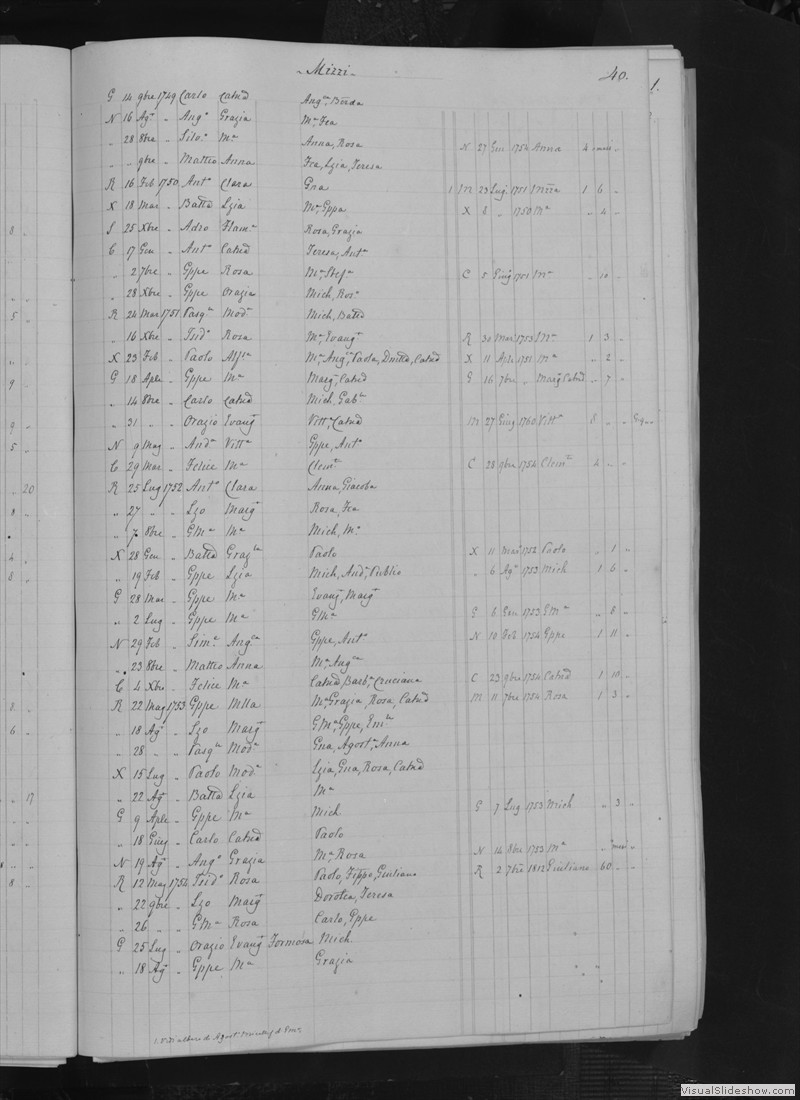 Mizzi 40.
G 14 9bre 1749 Carlo Catnd Angca, Bnda
N 16 Agt „ Ango Grazia Ma, Fca
„ 28 8bre „ Silo Ma Anna, Rosa N 27 Gen 1754 Anna 4 mesi
„ „ 9bre „ Matteo Anna Fca, Lzia, Teresa
R 16 Feb 1750 Anto Clara Gna 1 M 23 Lug 1751 1 6 „
X 18 Mar „ Batta Lzia Ma, Gppa X 8 „ 1750 Ma „ 4 „
S 25 Xbre „ Adro Flama Rosa, Grazia
8 „
C 17 Gen „ Anto Catnd Teresa, Anta
„ 2 7bre „ Gppe Rosa Ma, Stefa C 5 Giug 1751 Ma „ 10 „
„ 28 Xbre „ Gppe Orazia Mich, Rosa
R 24 Mar 1751 Pasqe Moda Mich, Batta
5 „
„ 16 Xbre „ Isido Rosa Ma, Evangta R 30 Mar 1753 Ma 1 3 „
X 23 Feb „ Paolo Alfsa Ma, Angca, Paola, Dnilla, Catnd X 11 Aple 1751 Ma „ 2 „
G 18 Aple „ Gppe Ma Margta, Catnd G 16 7bre „ Margta Catnd „ 7 „
9 „
„ 14 8bre „ Carlo Catnd Mich, Gable
„ 31 „ „ Orazio Evangta Vitta, Catnd M 27 Giug 1760 Vitta 8 „ „
9 „
N 9 Mag „ Anda Vitta Gppe, Anto
5 „
C 29 Mar „ Felice Ma Clemte C 28 9bre 1754 Clemte 4 „ „
R 25 Lug 1752 Anto Clara Anna, Giacoba
„ 20
„ 27 „ „ Lzo Margta Rosa, Fca
8 „
„ 7 8bre „ GMa Ma Mich, Ma
X 28 Gen „ Batta Grazlla Paolo X 11 Mar 1752 Paolo „ 1 „
4 „
„ 19 Feb „ Gppe Lzia Mich, Anda, Publio „ 6 Agt 1753 Mich 1 6 „
8 „
G 28 Mar „ Gppe Ma Evangta, Margta
„ 2 Lug „ Gppe Ma GMa G 6 Gen 1753 GMa „ 8 „
N 29 Feb „ Simne Angca Gppe, Anto N 10 Feb 1754 Gppe 1 11 „
„ 23 8bre „ Matteo Anna Ma, Angca
C 4 Xbre „ Felice Ma Catnd, Barba, Cruciana C 23 9bre 1754 Catnd 1 10 „
R 22 Mag 1753 Gppe Mlla Ma, Grazia, Rosa, Catnd M 11 7bre 1754 Rosa 1 3 „
8 „
„ 18 Agt „ Lzo Margta GMa, Gppe, Emle
6 „
„ 28 „ „ Pasqle Moda Gna, Agosta, Anna
X 15 Lug „ Paolo Moda Lzia, Gna, Rosa, Catnd
„ 22 Agt „ Batta Lzia Ma
„ 17
G 9 Aple „ Gppe Ma Mich G 7 Lug 1753 Mich „ 3 „
„ 18 Giug „ Carlo Catnd Paolo
N 19 Agt „ Ango Grazia Ma, Rosa N 14 8bre 1753 Ma
R 12 Mag 1754 Isido Rosa Paolo, Filppo, Giuliano R 2 7bre 1812 Giuliano 60 „ „
8 „
„ 22 9bre „ Lzo Margta Dorotea, Teresa
„ 26 „ „ GMa Rosa Carlo, Gppe
G 25 Lug „ Orazio Evangta Formosa Mich.
„ 18 Agt „ Gppe Ma Grazia
1.
VisualSlideshow.com